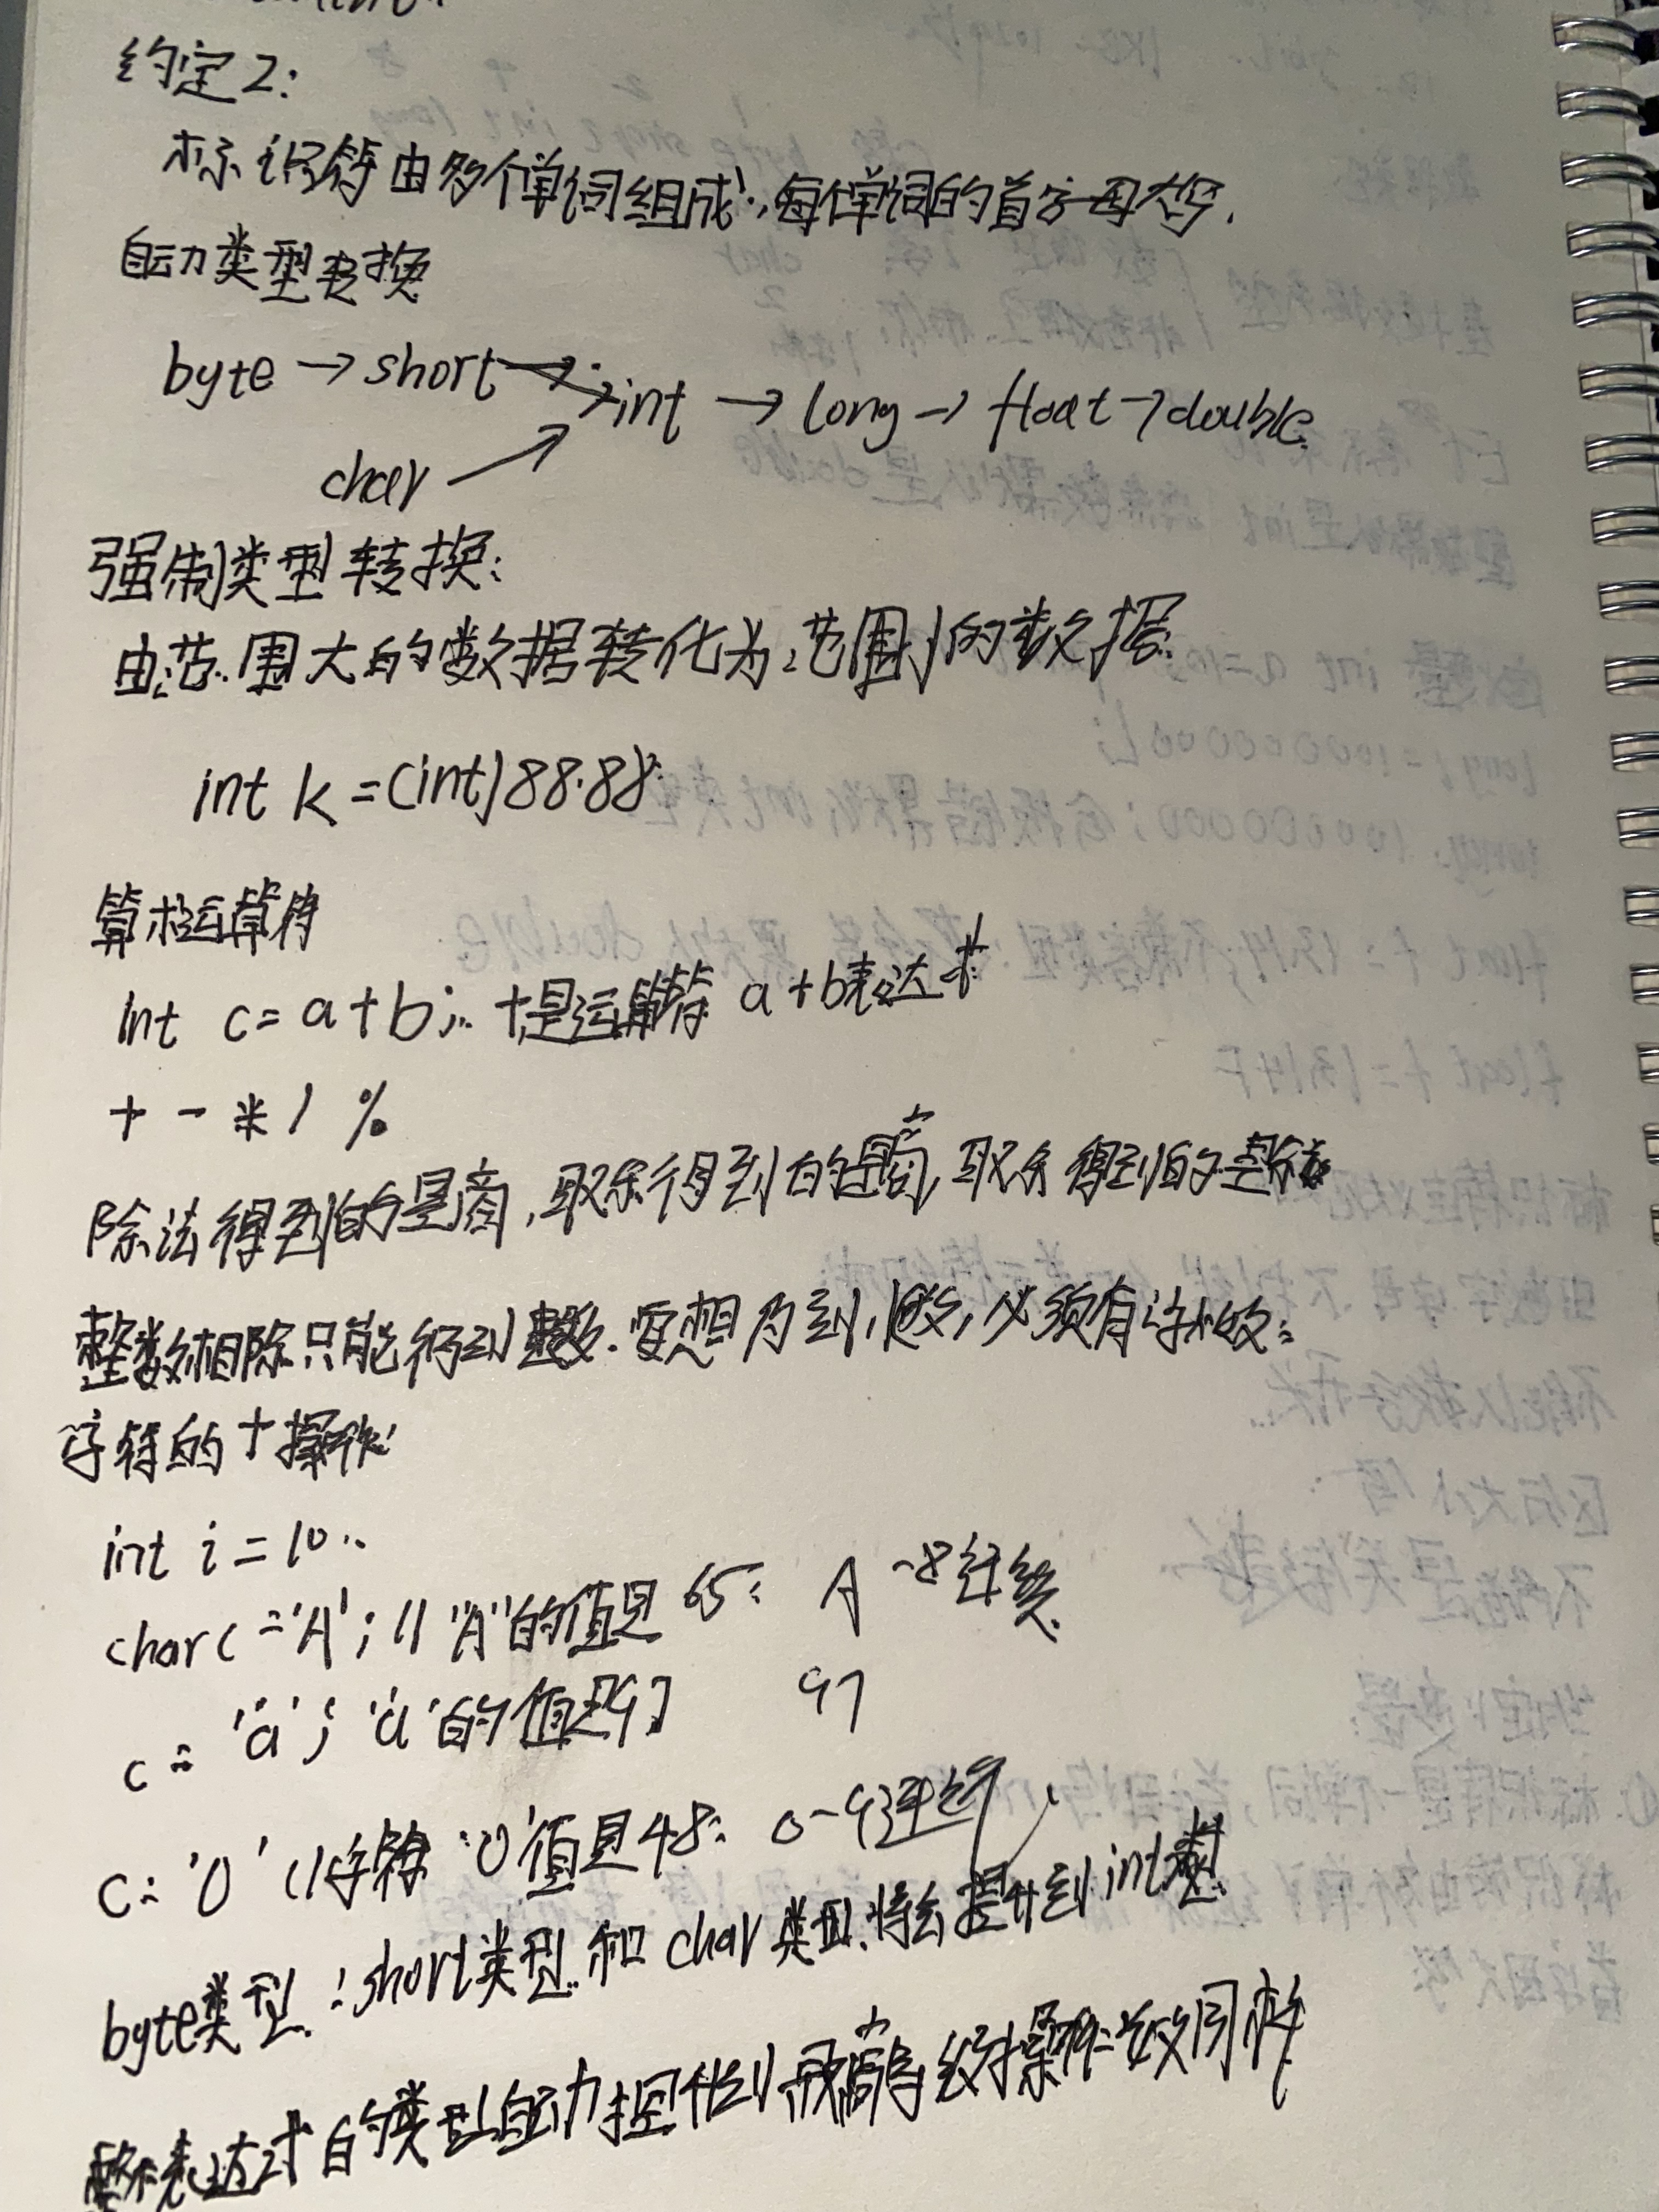 约定2:
标识符由多个单词组成,每单词的首字母大写.
自动类型转换
byte → short → int → long → float → double
char ↗
强制类型转换:
由范围大的数据转化为范围小的数据
int k =(int)88.88
算术运算符
int c= a+b; +是运算符 a+b表达式
+ - * / %
除法得到的是商,取余得到的是商,取余得到的是
整数相除只能得到整数.要想得到小数,必须有浮点数
字符的+操作
int i = 10
char c ='A'; // "A"的值是 65 A
c = 'a'; 'a'的值是97 97
c= '0' //字符'0'值是48: 0-9连续
byte类型 short类型 和 char类型 将会提升到int类型
整个表达式的类型自动提升到最高等级操作数同样